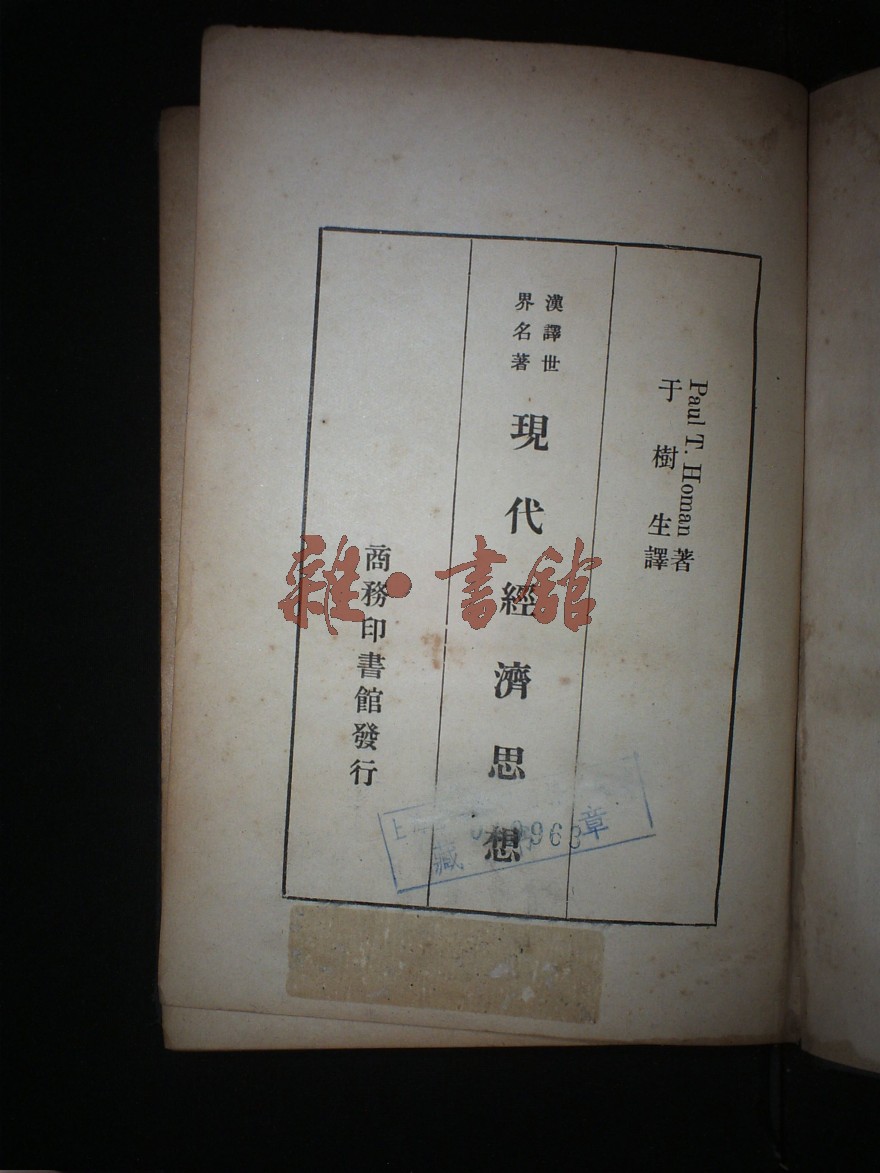 Paul T. Homan 著
于樹生譯
漢譯世
界名著
現代經濟思想
商務印書館發行
雜·書館
藏 章